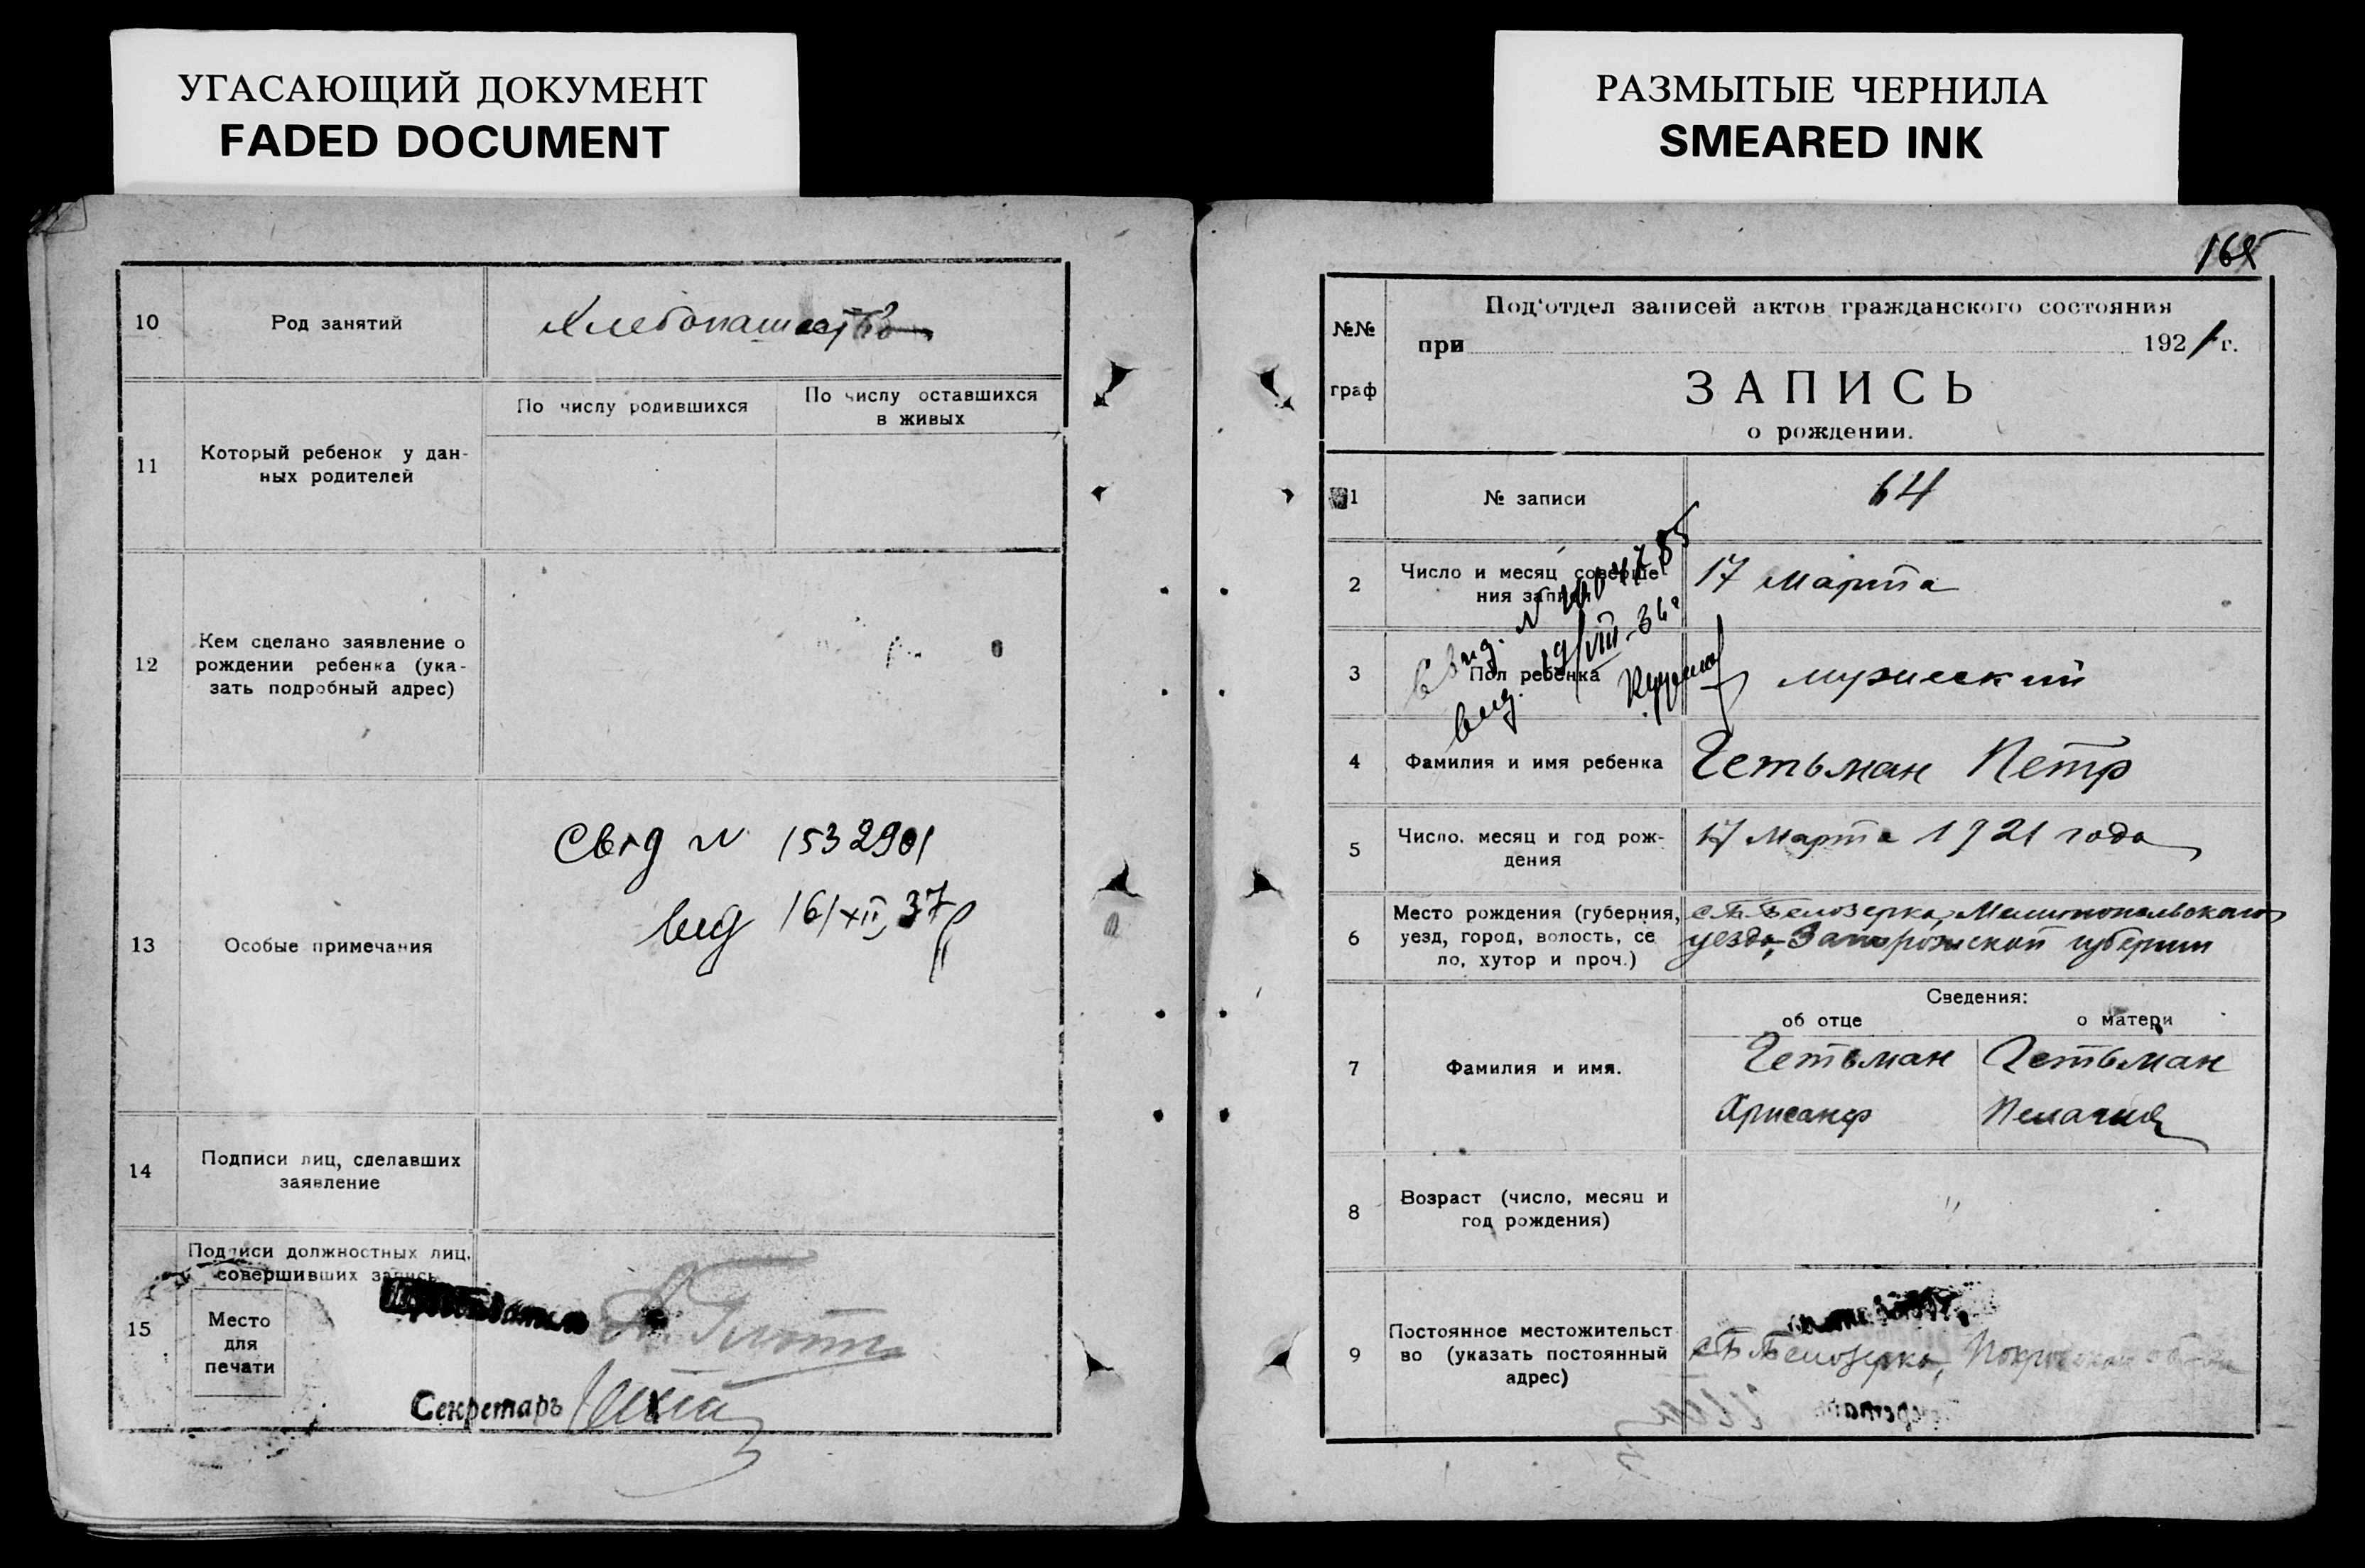 УГАСАЮЩИЙ ДОКУМЕНТ
FADED DOCUMENT
10
Род занятий
Хлебопашество
11
Который ребенок у дан-
ных родителей
По числу родившихся
По числу оставшихся
в живых
12
Кем сделано заявление о
рождении ребенка (ука-
зать подробный адрес)
13
Особые примечания
Свид N 1532901
выд 16/XII 37
14
Подписи лиц, сделавших
заявление
15
Подписи должностных лиц,
совершивших запись
Место
для
печати
Секретарь
РАЗМЫТЫЕ ЧЕРНИЛА
SMEARED INK
№№
граф
Под'отдел записей актов гражданского состояния
при 1921 г.
ЗАПИСЬ
о рождении.
1
№ записи
64
2
Число и месяц соверше
ния записи
17 Марта
Свид. N
выд. 19/VIII-36г
3
Пол ребенка
мужеский
4
Фамилия и имя ребенка
Гетьман Петр
5
Число, месяц и год рож-
дения
17 Марта 1921 года
6
Место рождения (губерния,
уезд, город, волость, се
ло, хутор и проч.)
с. Б. Белозерка, Мелитопольского
уезда, Запорожской губернии
Сведения:
об отце
о матери
7
Фамилия и имя.
Гетьман
Хрисанф
Гетьман
Пелагия
8
Возраст (число, месяц и
год рождения)
"
9
Постоянное местожительст
во (указать постоянный
адрес)
с. Б. Белозерка,